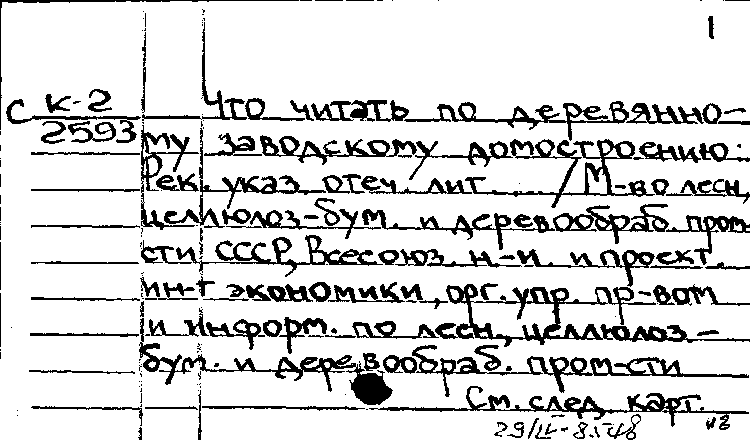 1
С К-2 Что читать по деревянно-
2593 му заводскому домостроению:
Рек. указ. отеч. лит. ... / М-во лесн.,
целлюлоз-бум. и деревообраб. пром-
сти СССР, Всесоюз. н.-и. и проект.
ин-т экономики, орг. упр. пр-вом
и информ. по лесн., целлюлоз.-
бум. и деревообраб. пром-сти
См. след. карт.